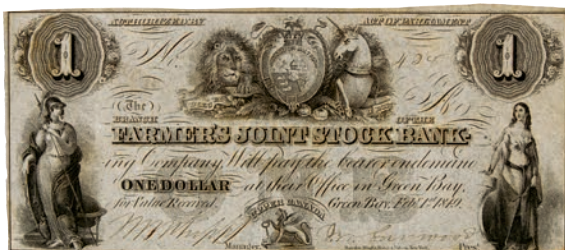 1 AUTHORIZED BY ACT OF PARLIAMENT 1
No.
(The)
BRANCH OF THE
FARMER'S JOINT STOCK BANK-
ing Company, Will pay the bearer on demand
ONE DOLLAR at their Office in Green Bay.
for Value Received. UPPER CANADA Green Bay, Feb. 1st 1849.
Manager. Pres.